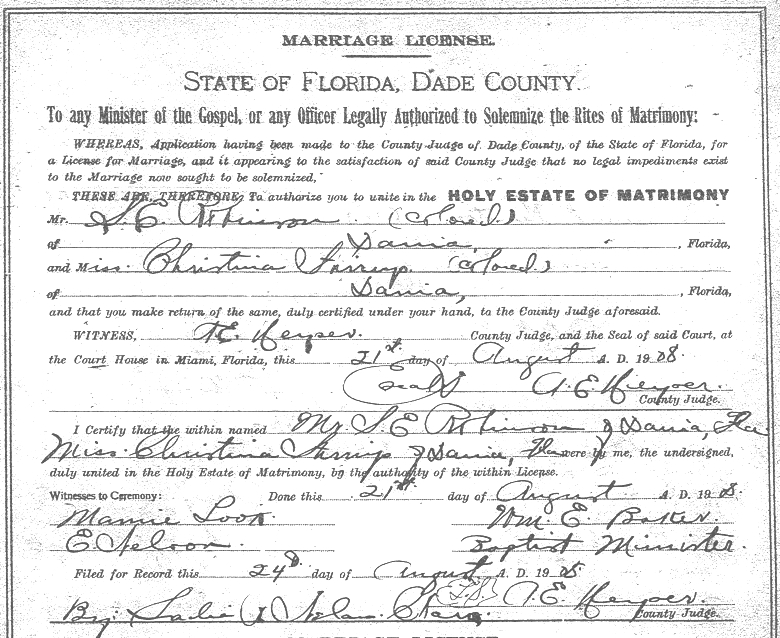 MARRIAGE LICENSE.
STATE OF FLORIDA, DADE COUNTY.
To any Minister of the Gospel, or any Officer Legally Authorized to Solemnize the Rites of Matrimony:
WHEREAS, Application having been made to the County Judge of Dade County, of the State of Florida, for
a License for Marriage, and it appearing to the satisfaction of said County Judge that no legal impediments exist
to the Marriage now sought to be solemnized,
THESE ARE, THEREFORE, To authorize you to unite in the HOLY ESTATE OF MATRIMONY
Mr. S. E. Robinson (Colored.)
of Dania, , Florida,
and Miss. Christina (Colored.)
of Dania, , Florida,
and that you make return of the same, duly certified under your hand, to the County Judge aforesaid.
WITNESS, A. E. Heyser. County Judge, and the Seal of said Court, at
the Court House in Miami, Florida, this 21st day of August A. D. 1908.
(seal) A. E. Heyser.
County Judge.
I Certify that the within named Mr S E Robinson of Dania, Fla
Miss. Christina of Dania, Fla were by me, the undersigned,
duly united in the Holy Estate of Matrimony, by the authority of the within License.
Witnesses to Ceremony: Done this 21st day of August A. D. 1908.
Mamie Wm. E. Baker.
E. Nelson. Baptist Minister.
Filed for Record this 24th day of August A. D. 1908
By: A. E. Heyser.
County Judge.